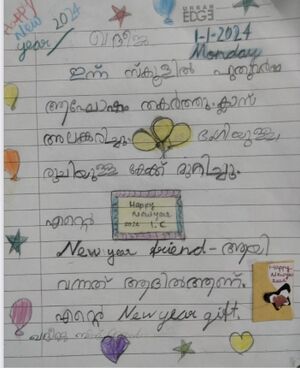 Happy New year / 2024
URBAN EDGE
ഖദീജ
1-1-2024
Monday
ഇന്ന് സ്കൂളിൽ പുതുവർഷ
ആഘോഷം തകർത്തു. ക്ലാസ്
അലങ്കരിച്ചു. ഭംഗിയുള്ള,
രുചിയുള്ള കേക്ക് മുറിച്ചു.
എന്റെ
Happy New year 2024 I.C
New year friend - ആയി
വന്നത് ആദിൽത്തന്ന്.
എന്റെ New year gift.
Happy New year 2024